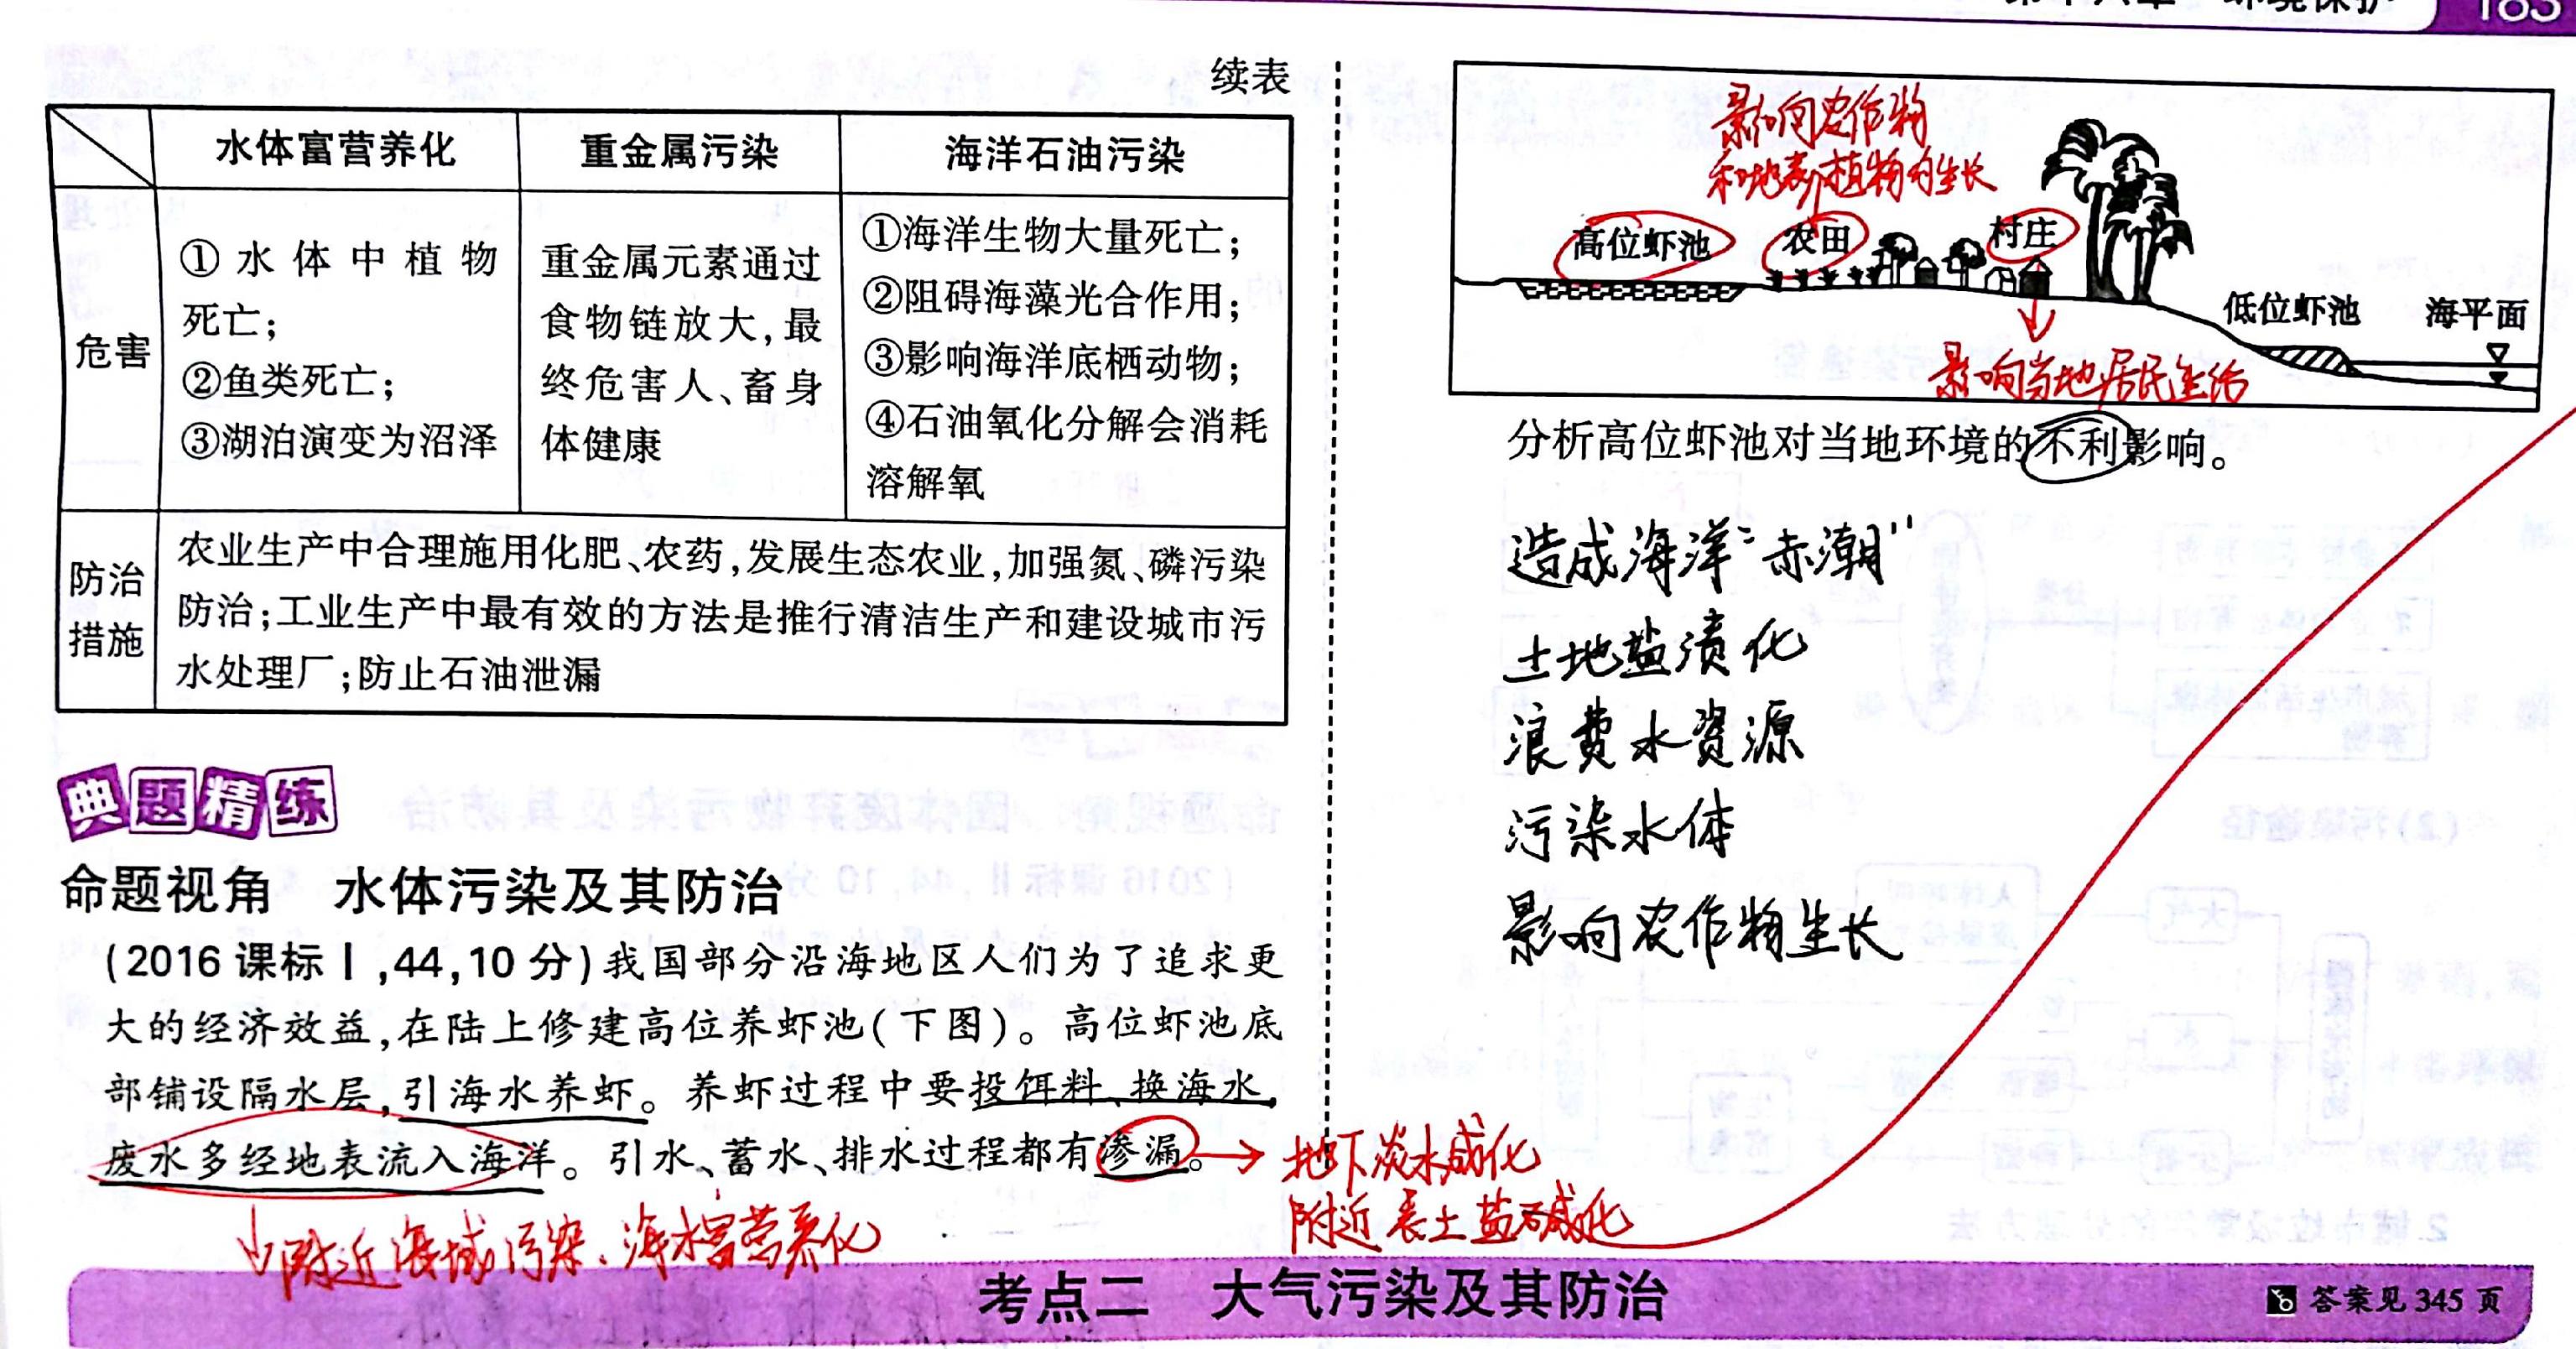 183
续表
水体富营养化 重金属污染 海洋石油污染
危害
①水体中植物
死亡;
②鱼类死亡;
③湖泊演变为沼泽
重金属元素通过
食物链放大,最
终危害人、畜身
体健康
①海洋生物大量死亡;
②阻碍海藻光合作用;
③影响海洋底栖动物;
④石油氧化分解会消耗
溶解氧
防治
措施
农业生产中合理施用化肥、农药,发展生态农业,加强氮、磷污染
防治;工业生产中最有效的方法是推行清洁生产和建设城市污
水处理厂;防止石油泄漏
典题精练
命题视角 水体污染及其防治
(2016课标Ⅰ,44,10分)我国部分沿海地区人们为了追求更
大的经济效益,在陆上修建高位养虾池(下图)。高位虾池底
部铺设隔水层,引海水养虾。养虾过程中要投饵料、换海水,
废水多经地表流入海洋。引水、蓄水、排水过程都有渗漏。
附近海域污染、海水富营养化
地下淡水咸化
附近表土盐碱化
影响农作物
和地表植物的生长
高位虾池
农田
村庄
低位虾池
海平面
影响当地居民生活
分析高位虾池对当地环境的不利影响。
造成海洋“赤潮”
土地盐渍化
浪费水资源
污染水体
影响农作物生长
考点二 大气污染及其防治
答案见345页